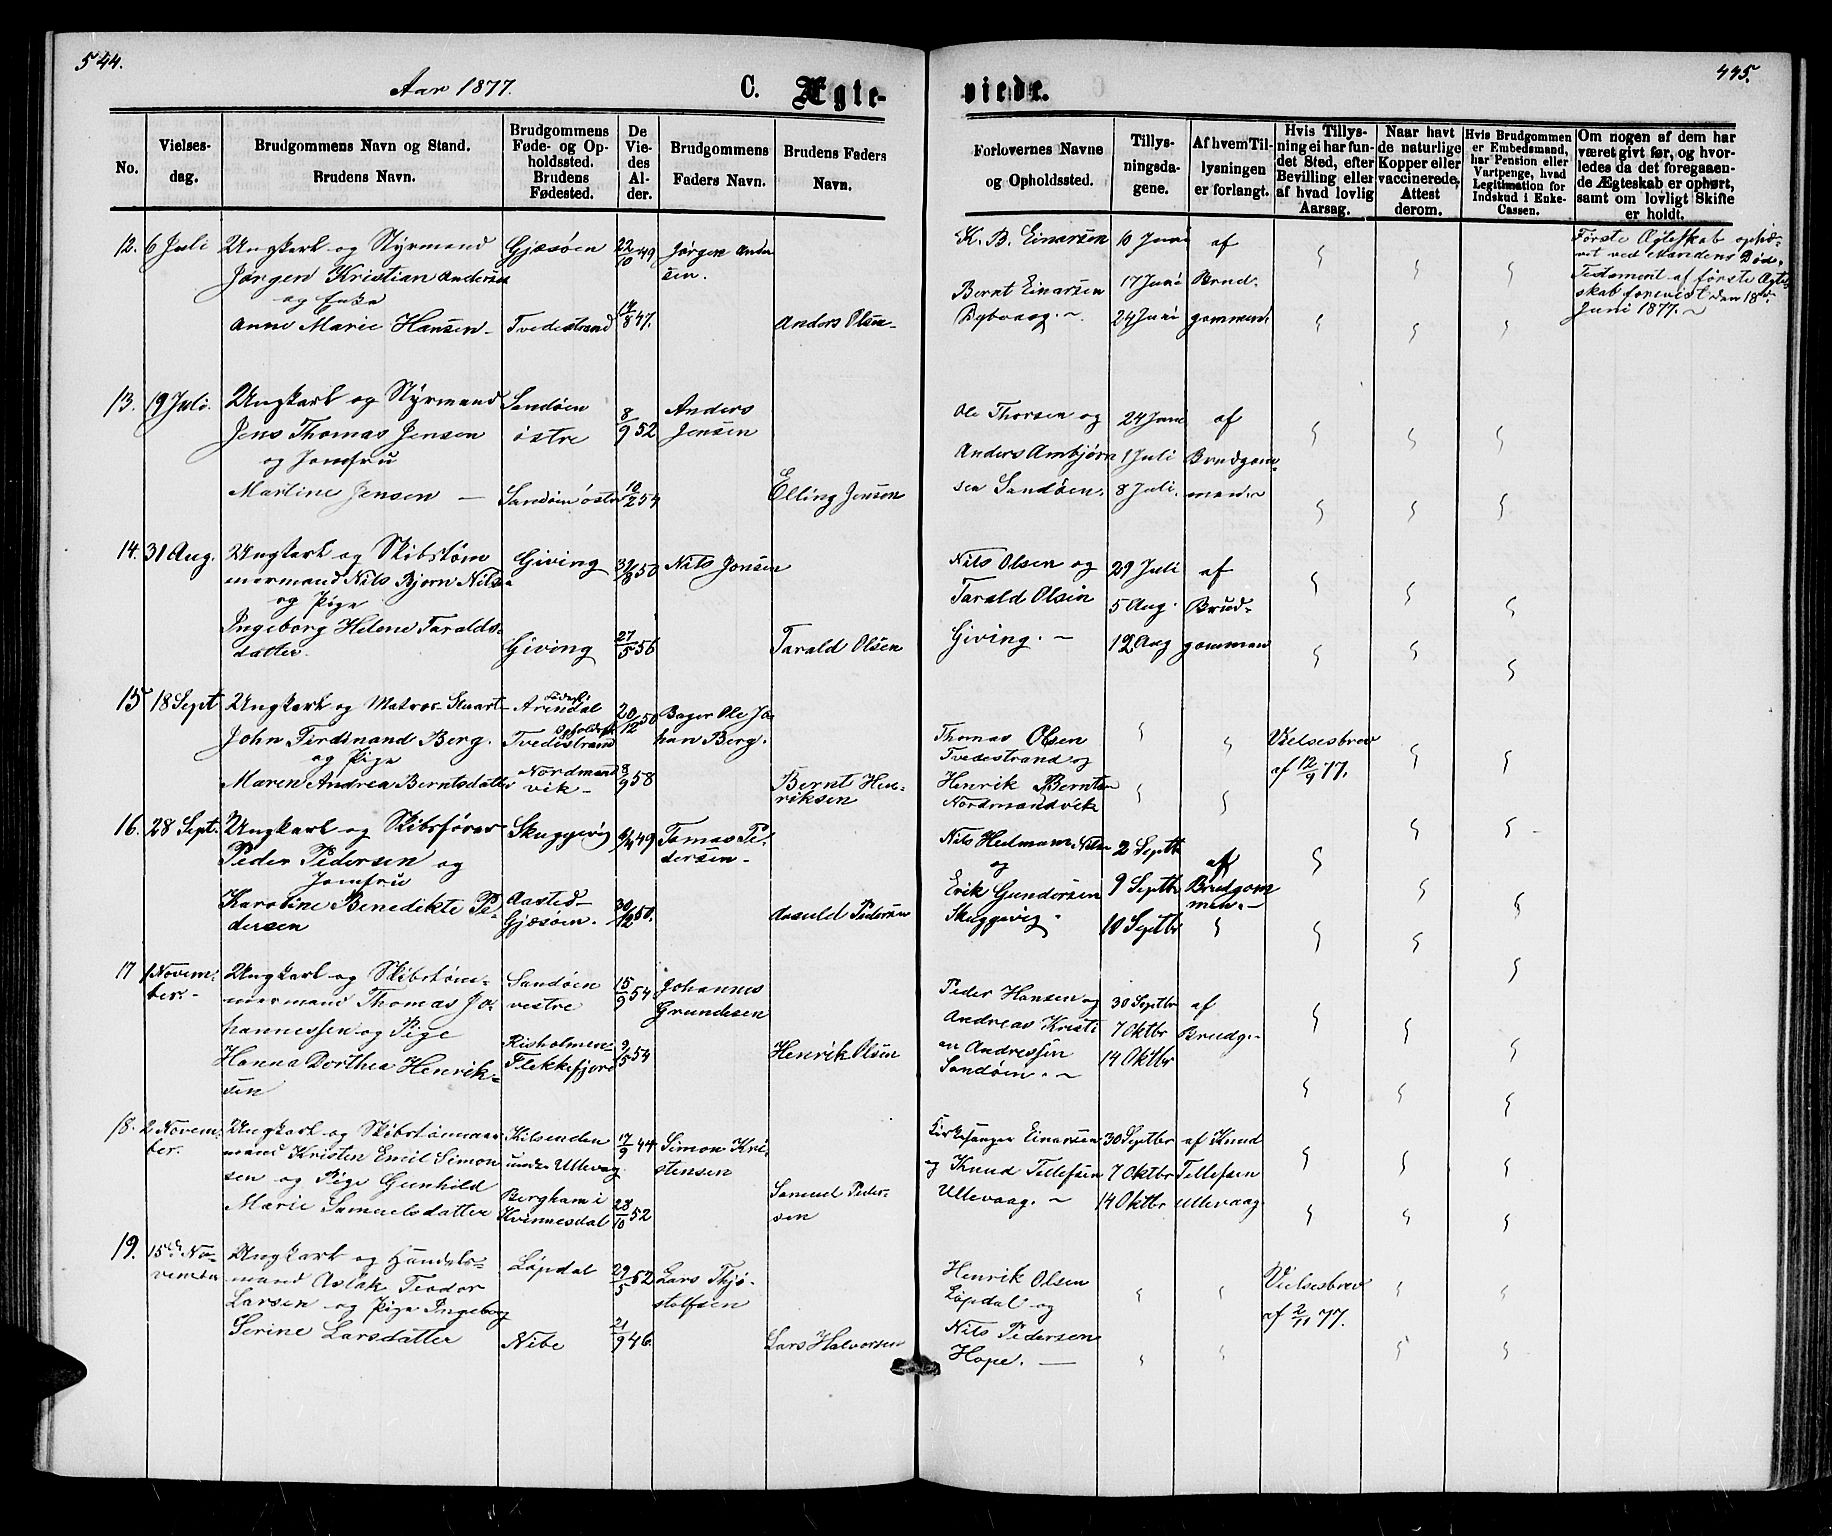 544.
Aar 1877.
C. Ægte-
viede.
445.
No.
Vielses-
dag.
Brudgommens Navn og Stand.
Brudens Navn.
Brudgommens
Føde- og Op-
holdssted.
Brudens
Fødested.
De
Vie-
des
Al-
der.
Brudgommens
Faders Navn.
Brudens Faders
Navn.
Forlovernes Navne
og Opholdssted.
Tillys-
ningsda-
gene.
Af hvem Til-
lysningen
er forlangt.
Hvis Tillys-
ning ei har fun-
det Sted, efter
Bevilling eller
af hvad lovlig
Aarsag.
Naar havt
de naturlige
Kopper eller
vaccinerede,
Attest
derom.
Hvis Brudgommen
er Embedsmand,
har Pension eller
Vartpenge, hvad
Legitimation for
Indskud i Enke-
Cassen.
Om nogen af dem har
været givt før, og hvor-
ledes da det foregaaen-
de Ægteskab er ophørt,
samt om lovligt Skifte
er holdt.
12. 6 Juli
Ungkarl og Styrmand
Jørgen Kristian Andersen
og Enke
Anne Marie Hansen-
Gjæsøen
Tvedestrand
22/10 49
14/8 47.
Jørgen Ander
sen.
Anders Olsen-
K. B. Einarsen
Bernt Einarsen
Dybvaag.
10 Juni
17 Juni
24 Juni
af
Brud-
gommen.
Første Ægteskab ophæ-
vet ved Mandens Død.
Testament af første Ægte-
skab forevist den 18de
Juni 1877.
13. 19 Juli.
Ungkarl og Styrmand
Jens Thomas Jensen
og Jomfru
Martine Jensen —
Sandøen
østre
Sandøen østre
8/9 52
10/2 54
Anders
Jensen
Elling Jensen
Ole Thorsen og
Anders Ambjørn
sen Sandøen.
24 Juni
1 Juli
8 Juli.
af
Brudgom-
men.
14. 31 Aug.
Ungkarl og Skibstøm
mermand Nils Bjorn Nilsen
og Pige
Ingeborg Helene Taralds-
datter-
Giving
Giving
31/8 50
27/5 56
Nils Jensen
Tarald Olsen
Nils Olsen og
Tarald Olsen
Giving. -
29 Juli
5 Aug.
12 Aug
af
Brud-
gommen
15 18 Sept
Ungkarl og Matros Stuart
John Ferdinand Berg.
og Pige
Maren Andrea Berntsdatter
Fødest:
Arendal
Opholdsst
Tvedestrand
Nordmand
vik-
20/12 50
8/9 58
Bager Ole Jo
han Berg.
Bernt Hen-
riksen
Thomas Olsen
Tvedestrand og
Henrik Berntsen
Nordmandvik
Vielsesbrev
af 12/9 77.
16. 28 Sept.
Ungkarl og Skibsfører
Peder Pedersen og
Jomfru
Karoline Benedikte Pe-
dersen
Skuggevig
Aasted-
Gjæsøen.
49
30/12 50.
Tomas Pe-
dersen-
Aasuld Pedersen
Nils Heilmann Nilsen
og
Erik Gundersen
Skuggevig.
2 Septbr
9 Septbr
10 Septbr
af
Brudgom
men.-
17 1 Novem-
ber.-
Ungkarl og Skibstøm-
mermand Thomas Jo-
hannessen og Pige
Hanna Dorthea Henrik-
sen
Sandøen
vestre
Risholmen
Flekkefjord
15/9 54
9/5 54
Johannes
Grundesen
Henrik Olsen
Peder Hansen og
Andreas Kristi
an Andressen
Sandøen. -
30 Septbr
7 Oktbr
14 Oktbr
af
Brudg.-
18. 2 Novem-
ber.
Ungkarl og Skibstømmer
mand Kristen Emil Simon
sen og Pige Gunhild
Marie Samuelsdatter
Kilsenden
under Ullevag
Bergham i
Kvinnesdal
17/9 44
28/10 52
Simon Kri-
stensen
Samuel Peder-
sen
Kirkesanger Einarsen
og Knud Tellefsen
Ullevaag. -
30 Septbr
7 Oktbr
14 Oktbr
af Knud
Tellefsen
Ullevaag
19. 15de No-
vember
Ungkarl og Handels-
mand Aslak Teodor
Larsen og Pige Ingeborg
Serine Larsdatter
Løpdal
Nibe
29/5 52
21/9 46.
Lars Thjø-
stolfsen
Lars Halvorsen
Henrik Olsen
Løpdal og
Nils Pedersen
Hope. —
Vielsesbrev
af 2/11 77.